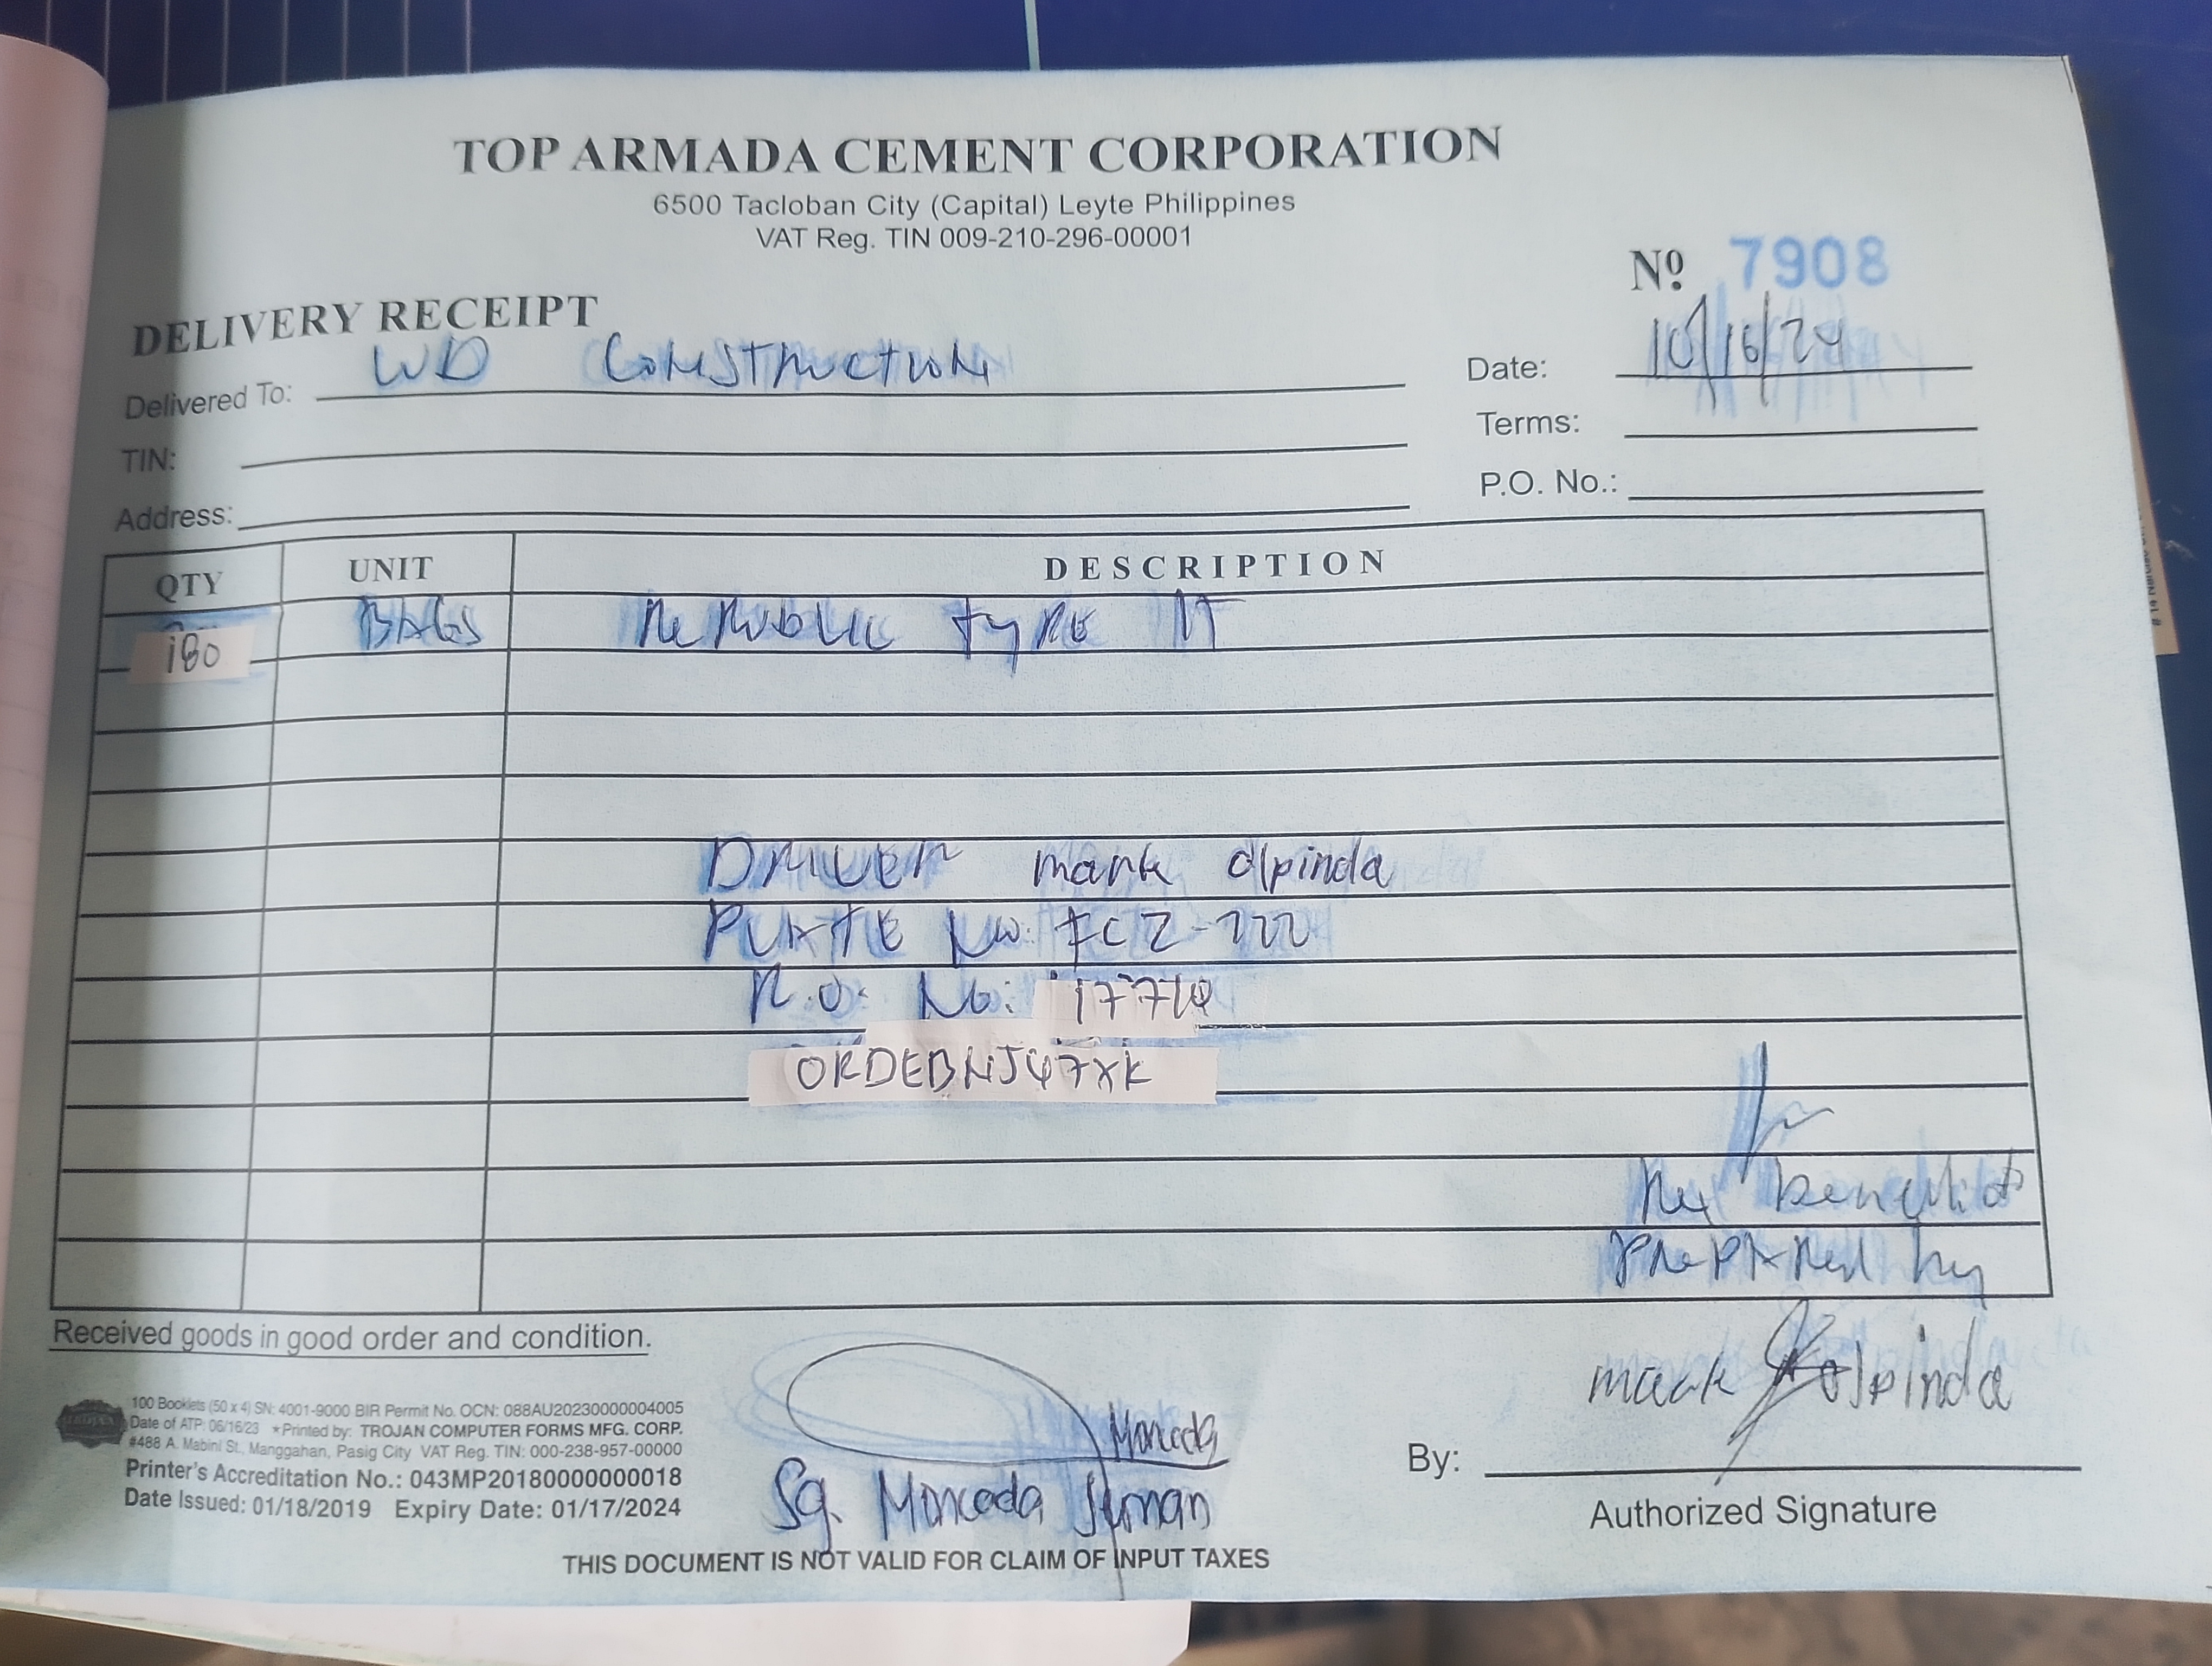 TOP ARMADA CEMENT CORPORATION
6500 Tacloban City (Capital) Leyte Philippines
VAT Reg. TIN 009-210-296-00001
Nº 7908
DELIVERY RECEIPT
Delivered To: WD Construction
Date: 10/16/24
TIN:
Terms:
Address:
P.O. No.:
QTY UNIT DESCRIPTION
180 BAGS Republic type 1T
DRIVER mark Olpinda
PLATE No: FCZ-722
R.O. No: 1771
ORDEBNJ47XK
Rex benedict
Prepared by
Received goods in good order and condition.
mark Olpinda
100 Booklets (50 x 4) SN: 4001-9000 BIR Permit No. OCN: 088AU20230000004005
Date of ATP: 06/16/23 *Printed by: TROJAN COMPUTER FORMS MFG. CORP.
#488 A. Mabini St., Manggahan, Pasig City VAT Reg. TIN: 000-238-957-00000
Printer's Accreditation No.: 043MP20180000000018
Date Issued: 01/18/2019 Expiry Date: 01/17/2024
Moncada
Sg. Moncada
By:
Authorized Signature
THIS DOCUMENT IS NOT VALID FOR CLAIM OF INPUT TAXES